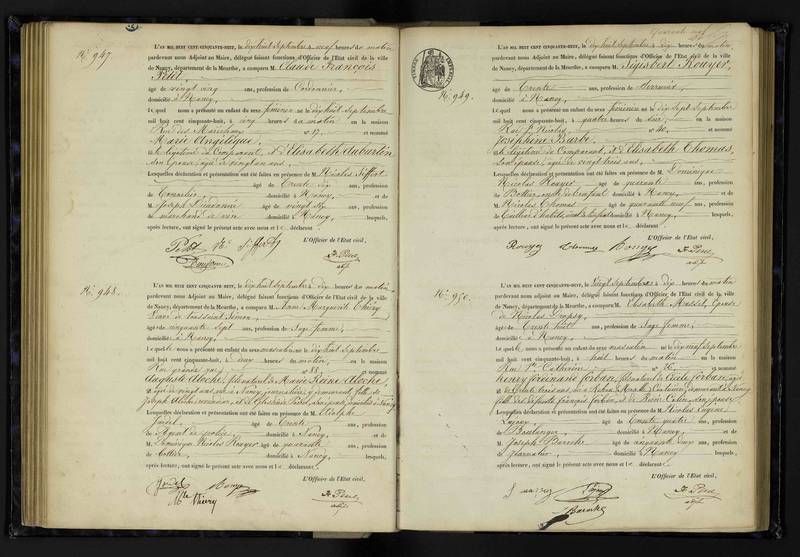 N° 947.
L'AN MIL HUIT CENT CINQUANTE-HUIT, le dix huit Septembre à neuf heures du matin
pardevant nous Adjoint au Maire, délégué faisant fonctions d'Officier de l'État civil de la ville
de Nancy, département de la Meurthe, a comparu M. Claude François
Petit
âgé de vingt cinq ans, profession de Cordonnier,
domicilié à Nancy,
Lequel nous a présenté un enfant du sexe féminin né le dix huit Septembre
mil huit cent cinquante-huit, à cinq heures du matin en la maison
Rue des Maréchaux n° 17, et nommé
Marie Angélique,
Elisabeth Aubertin
son épouse, âgée de vingt un ans,
Lesquelles déclaration et présentation ont été faites en présence de M. Nicolas Siffert
âgé de trente six ans, profession
de Tonnelier domicilié à Nancy et de
M. Joseph âgé de vingt six ans, profession
de marchand de vin domicilié à Nancy, lesquels,
après lecture, ont signé le présent acte avec nous et le déclarant.
L'Officier de l'Etat civil,
Petit
N° 948.
L'AN MIL HUIT CENT CINQUANTE-HUIT, le dix huit Septembre à dix heures du matin
pardevant nous Adjoint au Maire, délégué faisant fonctions d'Officier de l'État civil de la ville
de Nancy, département de la Meurthe, a comparu M. Marguerite Thiéry
Veuve de Toussaint Simon,
âgée de cinquante Sept ans, profession de Sage femme,
domiciliée à Nancy,
Lequel nous a présenté un enfant du sexe masculin né le dix huit Septembre
mil huit cent cinquante-huit, à deux heures du matin, en la maison
n° 88, et nommé
Auguste Aloche, fils naturel de Marie Reine Aloche,
Lesquelles déclaration et présentation ont été faites en présence de M. Adolphe
Jaidel âgé de trente ans, profession
de Agent de police domicilié à Nancy, et de
M. Dominique Nicolas Rouyer âgé de quarante ans, profession
de Bottier domicilié à Nancy, lesquels,
après lecture, ont signé le présent acte avec nous et le déclarant.
L'Officier de l'Etat civil,
Jaidel
Thiéry
N° 949.
L'AN MIL HUIT CENT CINQUANTE-HUIT, le dix huit Septembre à dix heures du matin,
pardevant nous Adjoint au Maire, délégué faisant fonctions d'Officier de l'État civil de la ville
de Nancy, département de la Meurthe, a comparu M. Sigisbert Rouyer,
âgé de trente ans, profession de Serrurier
domicilié à Nancy,
Lequel nous a présenté un enfant du sexe féminin né le dix Sept Septembre
mil huit cent cinquante-huit, à quatre heures du soir, en la maison
Rue St Nicolas n° 40, et nommé
Joséphine Barbe,
Elisabeth Thomas,
son épouse, âgée de vingt trois ans,
Lesquelles déclaration et présentation ont été faites en présence de M. Dominique
Nicolas Rouyer âgé de quarante ans, profession
de Bottier, oncle de l'enfant domicilié à Nancy, et de
M. Nicolas Thomas âgé de quarante neuf ans, profession
de Tailleur d'habits, domicilié à Nancy, lesquels,
après lecture, ont signé le présent acte avec nous et le déclarant.
L'Officier de l'Etat civil,
Rouyer Thomas Rouyer
N° 950.
L'AN MIL HUIT CENT CINQUANTE-HUIT, le Vingt Septembre à dix heures du matin
pardevant nous Adjoint au Maire, délégué faisant fonctions d'Officier de l'État civil de la ville
de Nancy, département de la Meurthe, a comparu M. Elisabeth Masset, épouse
de Nicolas Dropsy,
âgée de trente huit ans, profession de Sage femme,
domiciliée à Nancy,
Lequel nous a présenté un enfant du sexe masculin né le dix neuf Septembre
mil huit cent cinquante-huit, à huit heures du matin en la maison
Rue Ste Catherine n° 26, et nommé
Henry Ferdinand Forban, fils naturel de Cécile Forban, âgée
Lesquelles déclaration et présentation ont été faites en présence de M. Nicolas Eugène
âgé de trente quatre ans, profession
de Boulanger domicilié à Nancy, et de
M. Joseph Baroche âgé de cinquante deux ans, profession
de Journalier domicilié à Nancy lesquels,
après lecture, ont signé le présent acte avec nous et le déclarant.
L'Officier de l'Etat civil,
Baroche